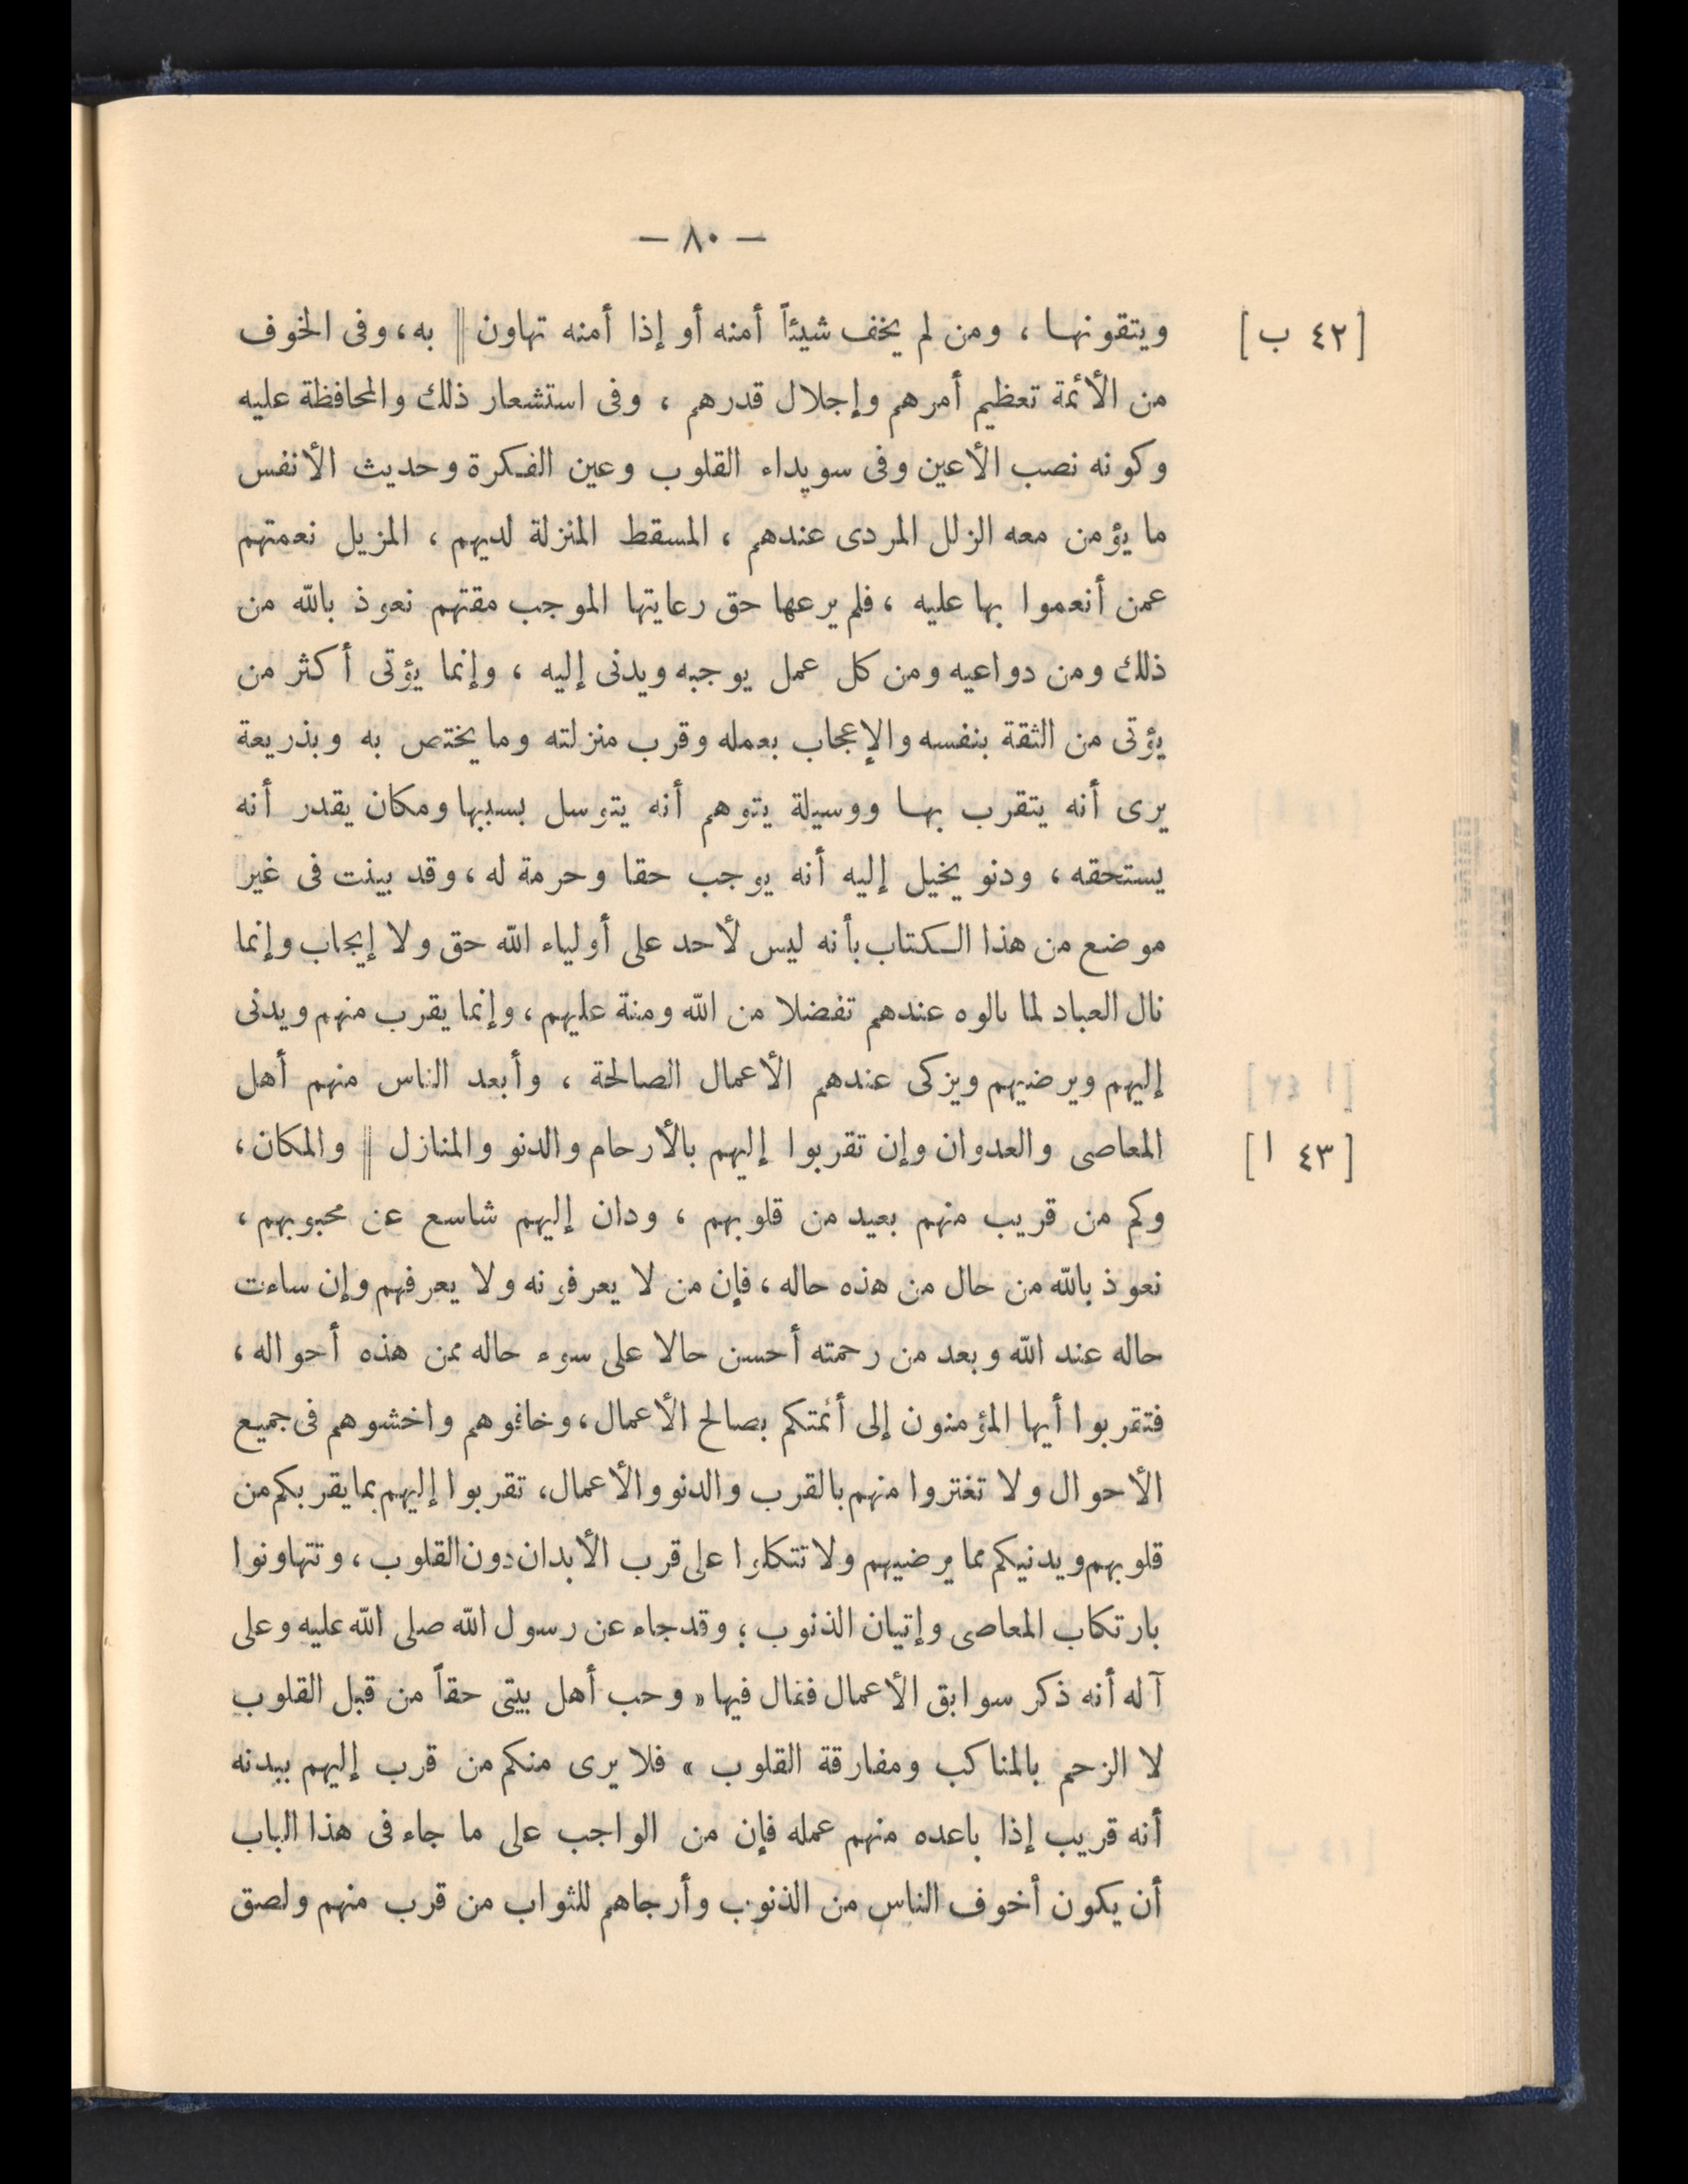 — ٨٠ —
[٤٢ ب]
ويتقونها ، ومن لم يخف شيئاً أمنه أو إذا أمنه تهاون || به، وفى الخوف
من الأئمة تعظيم أمرهم وإجلال قدرهم ، وفى استشعار ذلك والمحافظة عليه
وكونه نصب الأعين وفى سويداء القلوب وعين الفكرة وحديث الأنفس
ما يؤمن معه الزلل المردى عندهم ، المسقط المنزلة لديهم ، المزيل نعمتهم
عمن أنعموا بها عليه ، فلم يرعها حق رعايتها الموجب مقتهم نعوذ بالله من
ذلك ومن دواعيه ومن كل عمل يوجبه ويدنى إليه ، وإنما يؤتى أكثر من
يؤتى من الثقة بنفسه والإعجاب بعمله وقرب منزلته وما يختص به وبذريعة
يرى أنه يتقرب بها ووسيلة يتوهم أنه يتوسل بسببها ومكان يقدر أنه
يستحقه ، ودنو يخيل إليه أنه يوجب حقا وحرمة له ، وقد بينت فى غير
موضع من هذا الكتاب بأنه ليس لأحد على أولياء الله حق ولا إيجاب وإنما
نال العباد لما نالوه عندهم تفضلا من الله ومنة عليهم ، وإنما يقرب منهم ويدنى
إليهم ويرضيهم ويزكى عندهم الأعمال الصالحة ، وأبعد الناس منهم أهل
المعاصى والعدوان وإن تقربوا إليهم بالأرحام والدنو والمنازل || والمكان ،
[٤٣ ا]
وكم من قريب منهم بعيد من قلوبهم ، ودان إليهم شاسع عن محبوبهم ،
نعوذ بالله من حال من هذه حاله ، فإن من لا يعرفونه ولا يعرفهم وإن ساءت
حاله عند الله وبعد من رحمته أحسن حالا على سوء حاله ممن هذه أحواله ،
فتقربوا أيها المؤمنون إلى أئمتكم بصالح الأعمال ، وخافوهم واخشوهم فى جميع
الأحوال ولا تغتروا منهم بالقرب والدنو والأعمال، تقربوا إليهم بما يقربكم من
قلوبهم ويدنيكم مما يرضيهم ولا تتكلوا على قرب الأبدان دون القلوب ، وتتهاونوا
بارتكاب المعاصى وإتيان الذنوب ؛ وقد جاء عن رسول الله صلى الله عليه وعلى
آله أنه ذكر سوابق الأعمال فقال فيها « وحب أهل بيتى حقاً من قبل القلوب
لا الزحم بالمناكب ومفارقة القلوب » فلا يرى منكم من قرب إليهم ببدنه
أنه قريب إذا باعده منهم عمله فإن من الواجب على ما جاء فى هذا الباب
أن يكون أخوف الناس من الذنوب وأرجاهم للثواب من قرب منهم ولصق